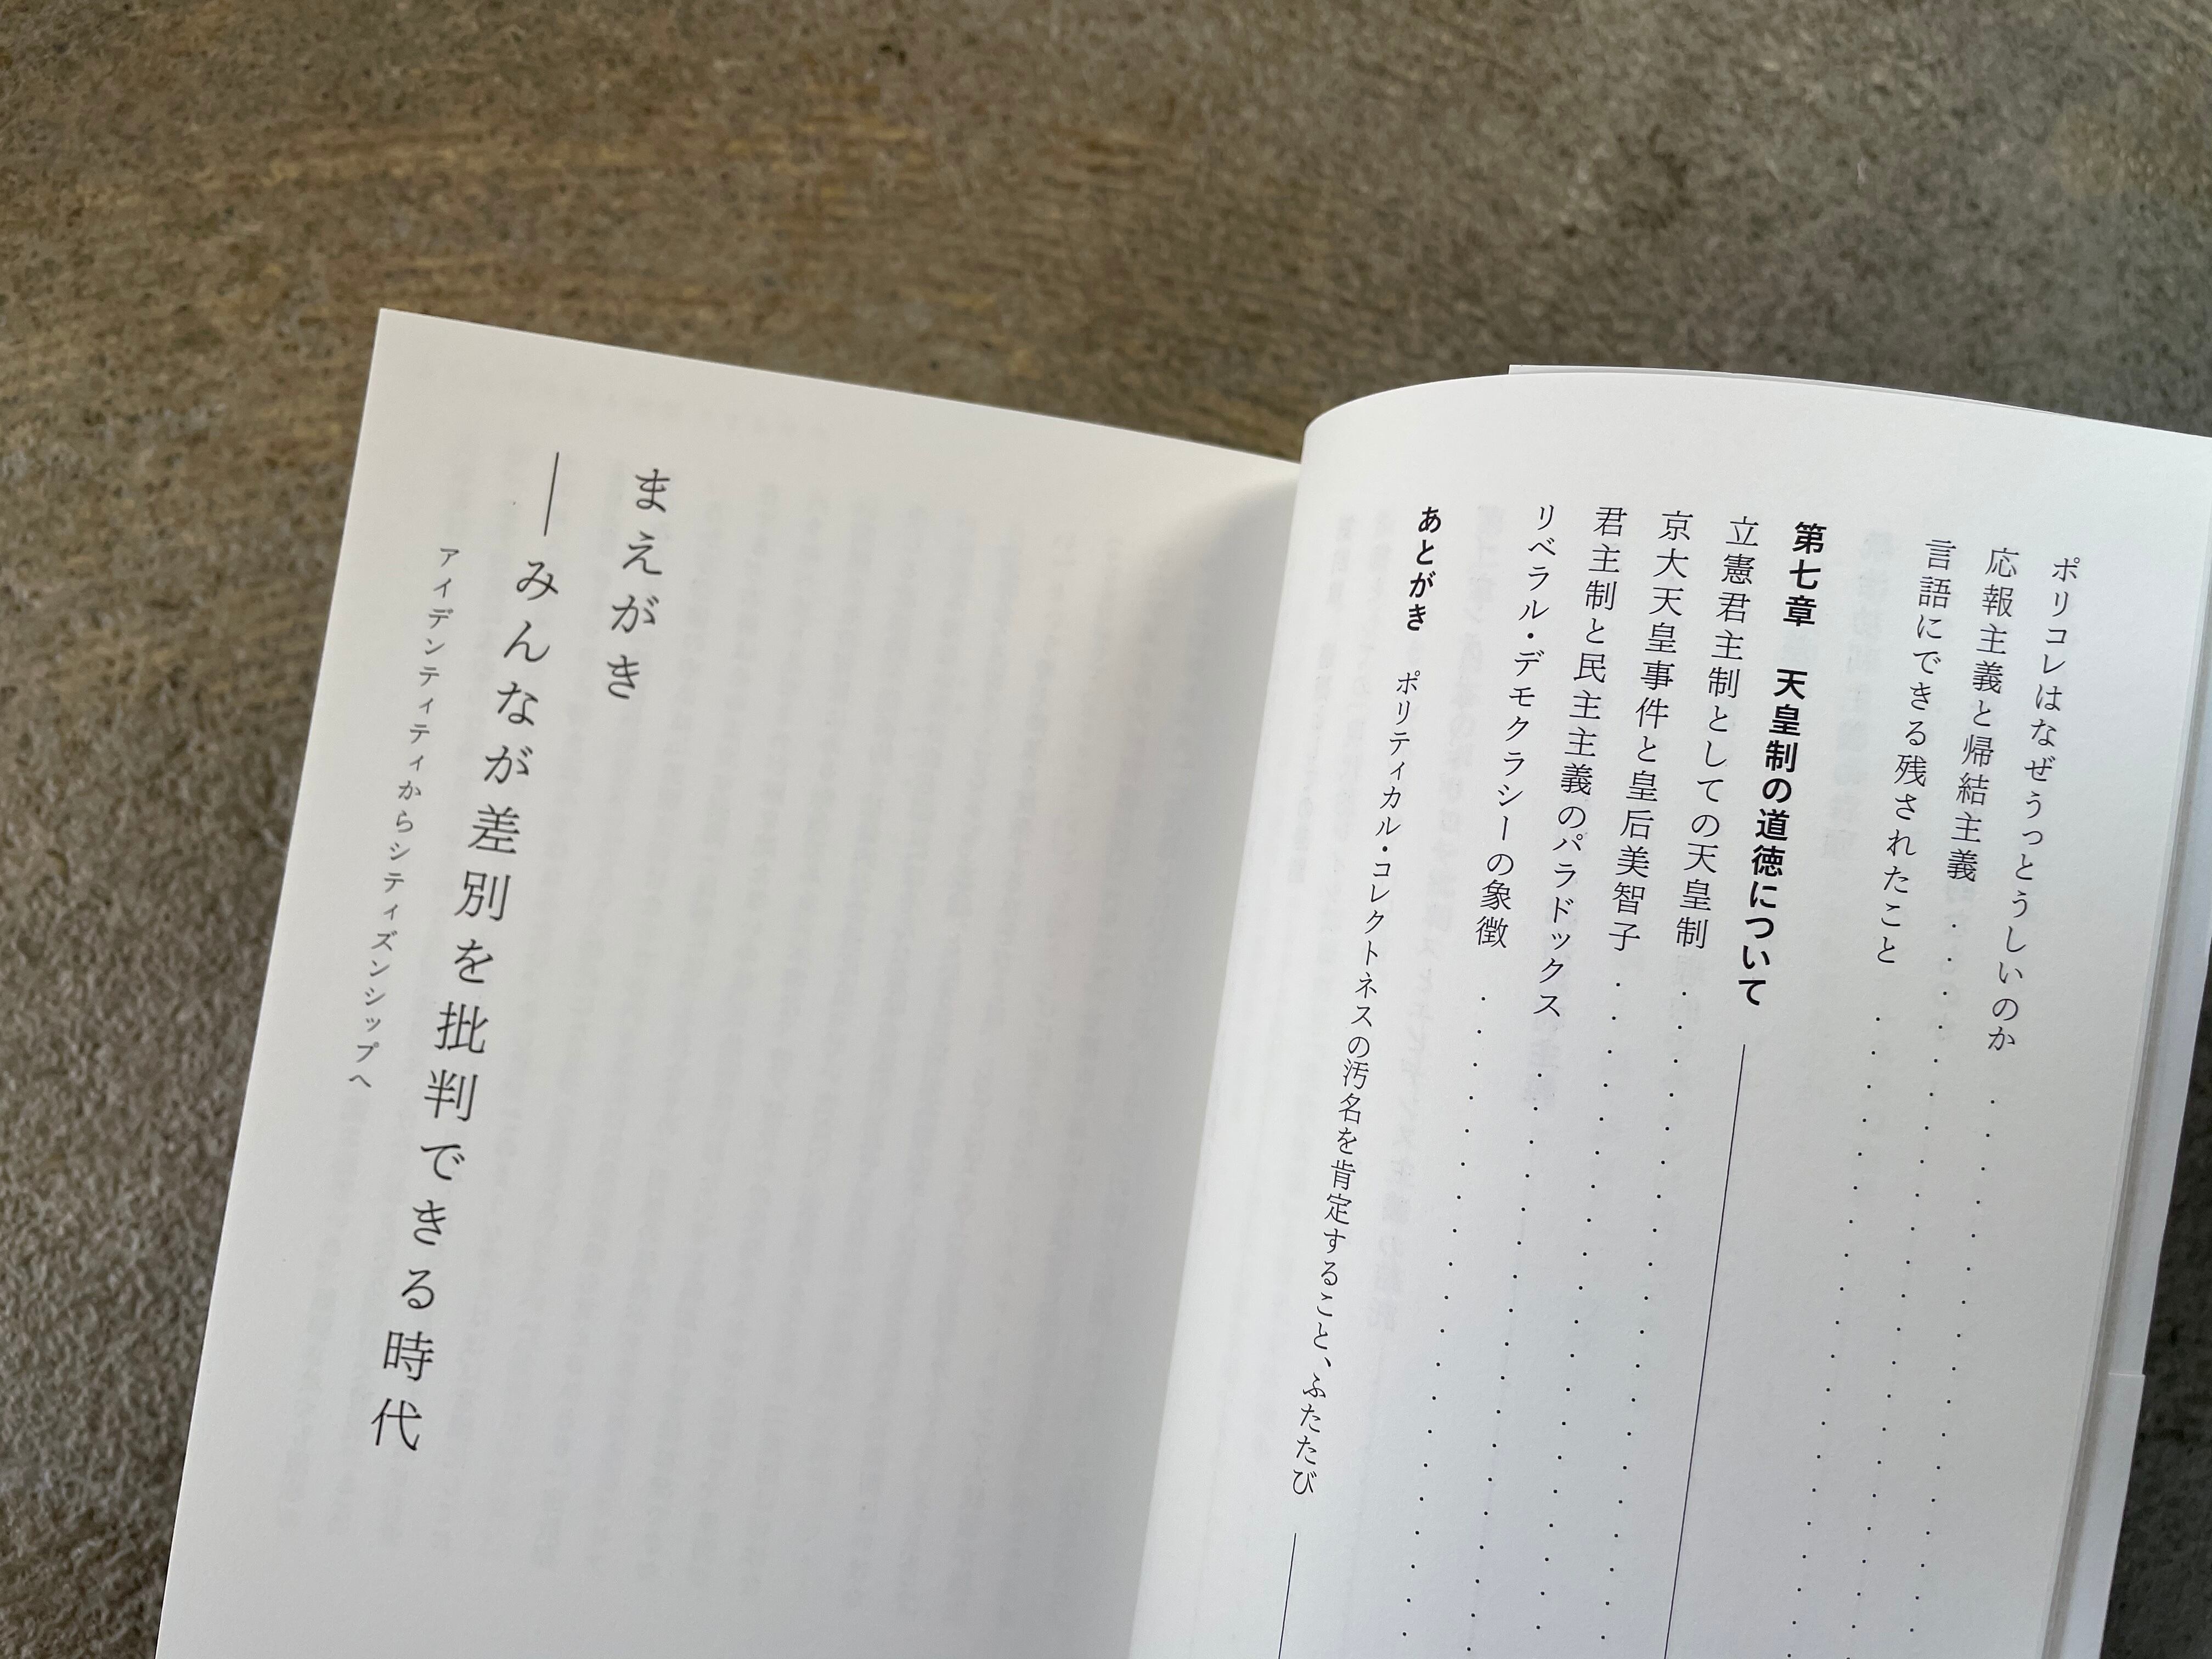 ポリコレはなぜうっとうしいのか
応報主義と帰結主義
言語にできる残されたこと
第七章　天皇制の道徳について
立憲君主制としての天皇制
京大天皇事件と皇后美智子
君主制と民主主義のパラドックス
リベラル・デモクラシーの象徴
あとがき　ポリティカル・コレクトネスの汚名を肯定すること、ふたたび
まえがき
――みんなが差別を批判できる時代
アイデンティティからシティズンシップへ